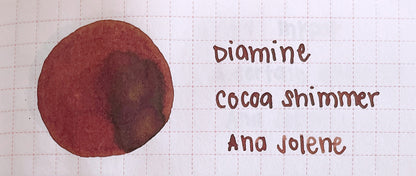 Diamine
Cocoa Shimmer
Ana Jolene